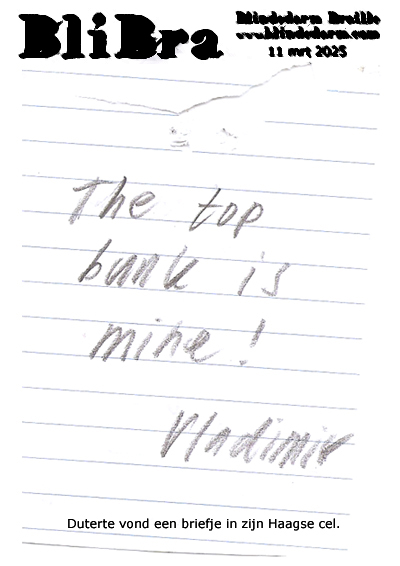 BliBra
Blindedarm Braille
www.blindedarm.com
11 mrt 2025
The top
bunk is
mine!
Vladimir
Duterte vond een briefje in zijn Haagse cel.